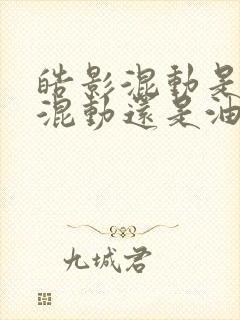 皓影混動是
混動還是油
九城君